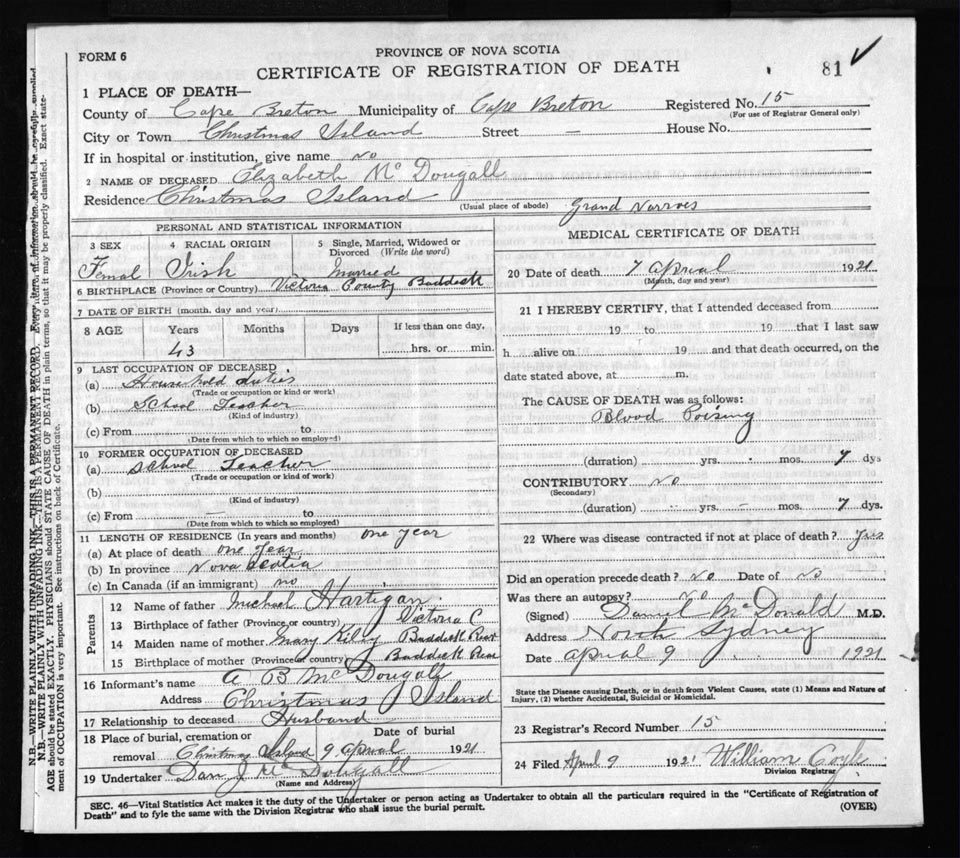 FORM 6
PROVINCE OF NOVA SCOTIA
CERTIFICATE OF REGISTRATION OF DEATH
81 ✓
1 PLACE OF DEATH—
County of Cape Breton Municipality of Cape Breton Registered No. 15
(For use of Registrar General only)
City or Town Christmas Island Street — House No.
If in hospital or institution, give name no
2 NAME OF DECEASED Elizabeth McDougall
Residence Christmas Island (Usual place of abode) Grand Narrows
PERSONAL AND STATISTICAL INFORMATION
3 SEX 4 RACIAL ORIGIN 5 Single, Married, Widowed or Divorced (Write the word)
Femal Irish married
6 BIRTHPLACE (Province or Country) Victoria County Baddeck
7 DATE OF BIRTH (month, day and year)
8 AGE Years Months Days If less than one day,
43 hrs. or min.
9 LAST OCCUPATION OF DECEASED
(a) House hold duties
(Trade or occupation or kind or work)
(b) School Teacher
(Kind of industry)
(c) From to
(Date from which to which so employed)
10 FORMER OCCUPATION OF DECEASED
(a) School Teacher
(Trade or occupation or kind of work)
(b)
(Kind of industry)
(c) From — to
(Date from which to which so employed)
11 LENGTH OF RESIDENCE (In years and months) one year
(a) At place of death one year
(b) In province Nova Scotia
(c) In Canada (if an immigrant) no
Parents
12 Name of father Michael Hartigan
13 Birthplace of father (Province or country) Victoria C
14 Maiden name of mother Mary Killy Baddeck
15 Birthplace of mother (Province or country) Baddeck
16 Informant's name A B McDougall
Address Christmas Island
17 Relationship to deceased Husband
18 Place of burial, cremation or removal Date of burial
Christmas Island 9 April 1921
19 Undertaker Dan J McDougall
(Name and Address)
MEDICAL CERTIFICATE OF DEATH
20 Date of death 7 Aprual 1921
(Month, day and year)
21 I HEREBY CERTIFY, that I attended deceased from
19 to 19 that I last saw
h alive on 19 and that death occurred, on the
date stated above, at m.
The CAUSE OF DEATH was as follows:
Blood Poising
(duration) yrs. mos. 7 dys
CONTRIBUTORY No
(Secondary)
(duration) yrs. — mos. 7 dys.
22 Where was disease contracted if not at place of death? yes
Did an operation precede death? No Date of No
Was there an autopsy? No
(Signed) Daniel McDonald M.D.
Address North Sydney
Date Aprual 9 1921
State the Disease causing Death, or in death from Violent Causes, state (1) Means and Nature of
Injury, (2) whether Accidental, Suicidal or Homicidal.
23 Registrar's Record Number 15
24 Filed April 9 1921 William Coyle
Division Registrar
SEC. 46—Vital Statistics Act makes it the duty of the Undertaker or person acting as Undertaker to obtain all the particulars required in the "Certificate of Registration of
Death" and to fyle the same with the Division Registrar who shall issue the burial permit. (OVER)
N.B.—WRITE PLAINLY WITH UNFADING INK—THIS IS A PERMANENT RECORD. Every item of information should be carefully supplied
AGE should be stated EXACTLY. PHYSICIANS should STATE CAUSE OF DEATH in plain terms, so that it may be properly classified. Exact state-
ment of OCCUPATION is very important. See instructions on back of Certificate.